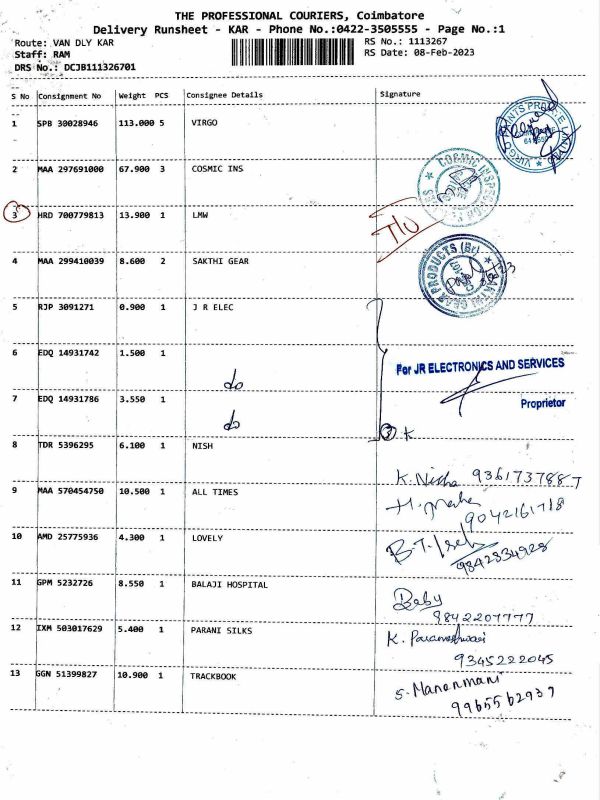 THE PROFESSIONAL COURIERS, Coimbatore
Delivery Runsheet - KAR - Phone No.:0422-3505555 - Page No.:1
Route: VAN DLY KAR RS No.: 1113267
Staff: RAM RS Date: 08-Feb-2023
DRS No.: DCJB111326701
S No Consignment No Weight PCS Consignee Details Signature
1 SPB 30028946 113.000 5 VIRGO
2 MAA 297691000 67.900 3 COSMIC INS
3 HRD 700779813 13.900 1 LMW
4 MAA 299410039 8.600 2 SAKTHI GEAR
SAKTHI GEAR PRODUCTS
5 RJP 3091271 0.900 1 J R ELEC
6 EDQ 14931742 1.500 1 do
For JR ELECTRONICS AND SERVICES
7 EDQ 14931786 3.550 1 do
Proprietor
3
8 TDR 5396295 6.100 1 NISH
K. Nisha 9361737887
9 MAA 570454750 10.500 1 ALL TIMES
9042161718
10 AMD 25775936 4.300 1 LOVELY
9842334928
11 GPM 5232726 8.550 1 BALAJI HOSPITAL
Baby
9842207777
12 IXM 503017629 5.400 1 PARANI SILKS
K. Parameshwari
9345222045
13 GGN 51399827 10.900 1 TRACKBOOK
S. Manonmani
9965562937